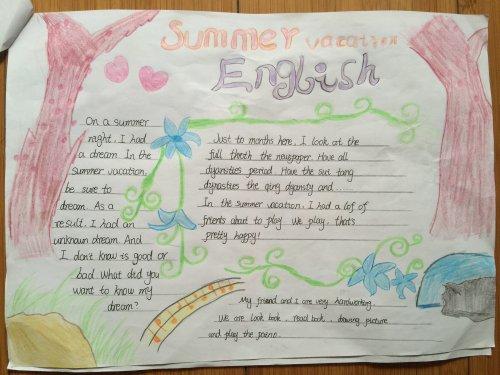 Summer vacation
English
On a summer
night, I had
a dream. In the
summer vacation,
be sure to
dream. As a
result, I had an
unknown dream. And
I don't know is good or
bad. What did you
want to know my
dream?
Just to months here, I look at the
full thresh the newspaper. Have all
dyansties period. Have the sui tang
dynasties the qing dyansty and......
In the summer vacation, I had a lot of
frients about to play. We play, that's
pretty happy!
My friend and I are very hardworking.
We are look book, read book, drawing picture
and play the poenn.